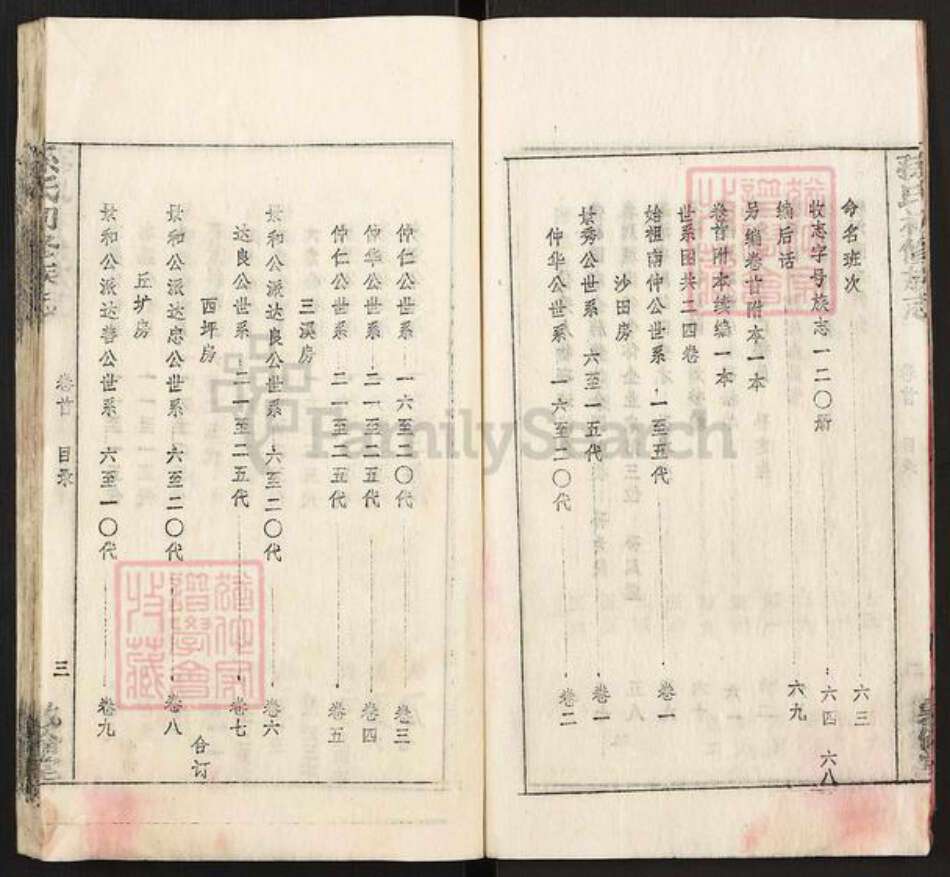 命名班次 六三
收志字母族志一二〇册 六四 六八
编后话 六九
另编卷首附本一本
卷首附本续编一本
世系图共二四卷
始祖南仲公世系 一至五代 卷一
沙田房
景秀公世系 六至一五代 卷一
仲华公世系 一六至二〇代 卷二
仲仁公世系 一六至二〇代 卷三
仲华公世系 二一至二五代 卷四
仲仁公世系 二一至二五代 卷五
三溪房
景和公派达良公世系 六至二〇代 卷六
达良公世系 二一至二五代 卷七
西坪房 合订
景和公派达忠公世系 六至二〇代 卷八
丘圹房
景和公派达善公世系 六至一〇代 卷九
卷首 目录 三
FamilySearch